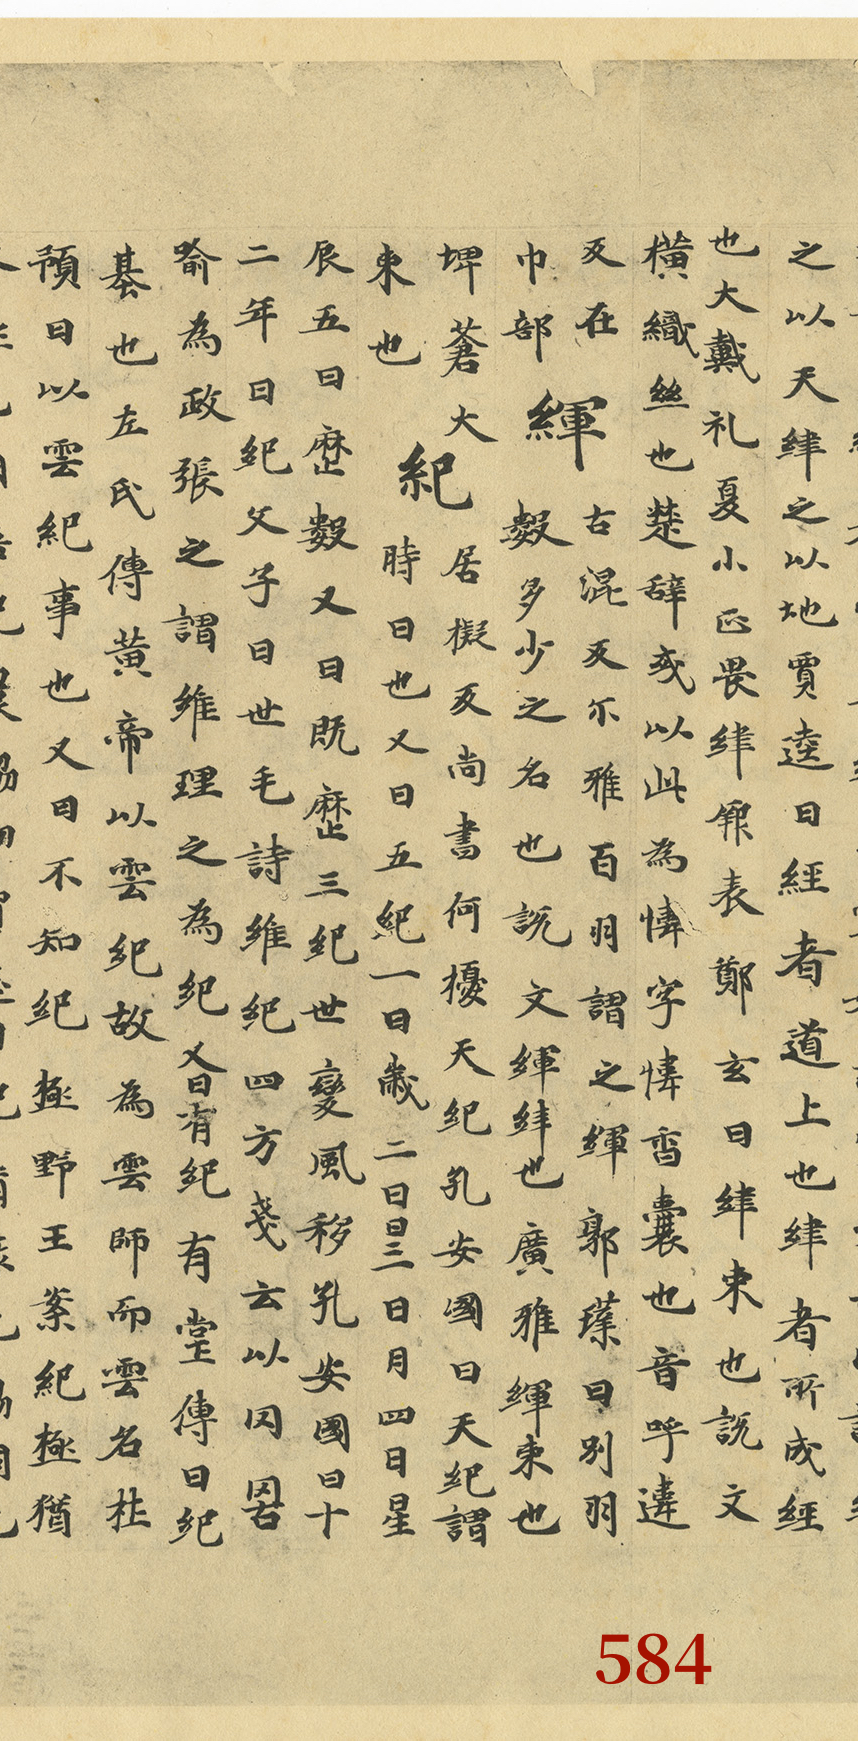 之以天緯之以地賈逵曰經者道上也緯者所成經
也大戴礼夏小正畏緯鞎表鄭玄曰緯束也説文
橫織絲也楚辞或以此為幃字幃香囊也音呼違
反在巾部
緷古混反尓雅百羽謂之緷郭璞曰別羽
數多少之名也説文緷緯也廣雅緷束也埤蒼大
束也
紀居擬反尚書俶擾天紀孔安國曰天紀謂
時日也又曰五紀一曰歲二曰月三曰日四曰星
辰五曰歷數又曰既歷三紀世變風移孔安國曰十
二年曰紀父子曰世毛詩維紀四方戔云以罔罟
喻為政張之謂維理之為紀又曰有紀有堂傳曰紀
基也左氏傳黃帝以雲紀故為雲師而雲名杜
預曰以雲紀事也又曰不知紀極野王案紀極猶
584